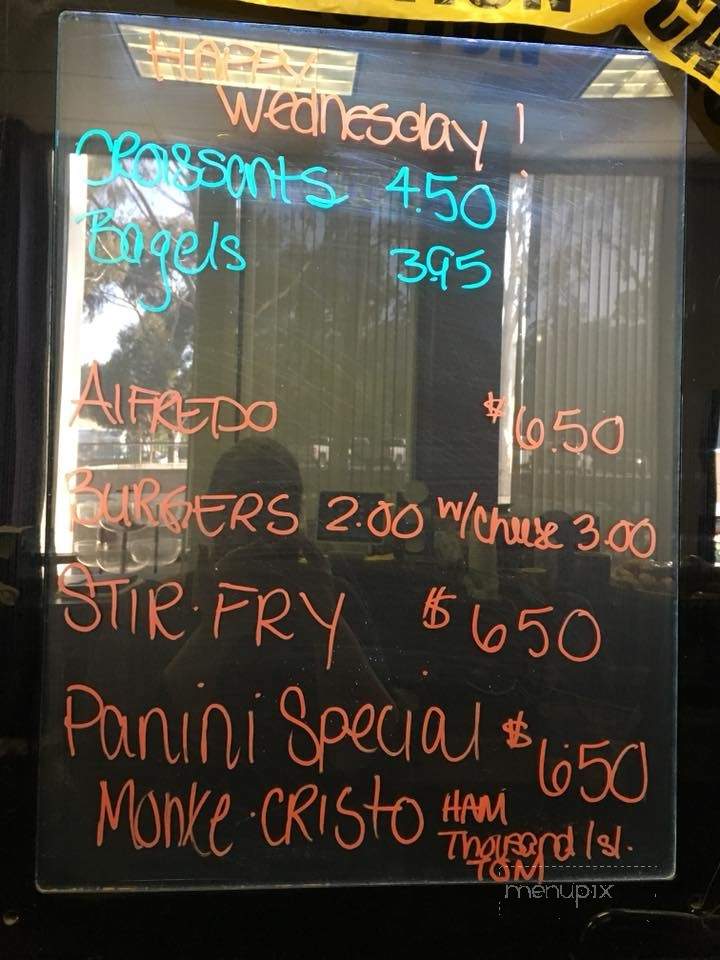 HAPPY
Wednesday!
Croissants 4.50
Bagels 3.95
AlFREDO $6.50
BURGERS 2.00 w/cheese 3.00
STIR·FRY $650
Panini Special $650
Monte·CRISTO HAM
Thousand Isl.
TOM
menupix